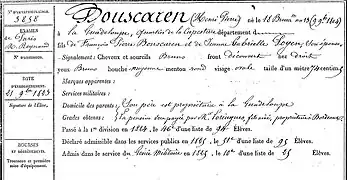 N.º D'IMMATRICULATION.
3858
EXAMEN
de Paris
M. Reynaud
N.º D'EXAMEN.
DATE
D'ENREGISTREMENT
Signature de l'Élève.
BOURSES
et
DÉVOUEMENT
Trousseau et première mise d'équipement.
Bouscaren (Henri Pierre) né le 18 Brum. an 13 (9 9bre 1804)
à la Guadeloupe, département d
fils de François Pierre Bouscaren et de Jeanne Gabrielle
Signalement : Cheveux et sourcils Bruns front découvert nez droit
yeux Bruns bouche moyenne menton rond visage ovale taille d'un mètre 74 centimèt.
Marques apparentes :
Services militaires :
Domicile des parents : Son père est propriétaire à la Guadeloupe
Grades obtenus : propriétaire Bordeaux
Passé à la 1re division en 1824, le 46e d'une liste de 94 Élèves.
Déclaré admissible dans les services publics en 1825, le 31e d'une liste de 95 Élèves.
Admis dans le service du Génie Militaire en 1825, le 10e d'une liste de 25 Élèves.